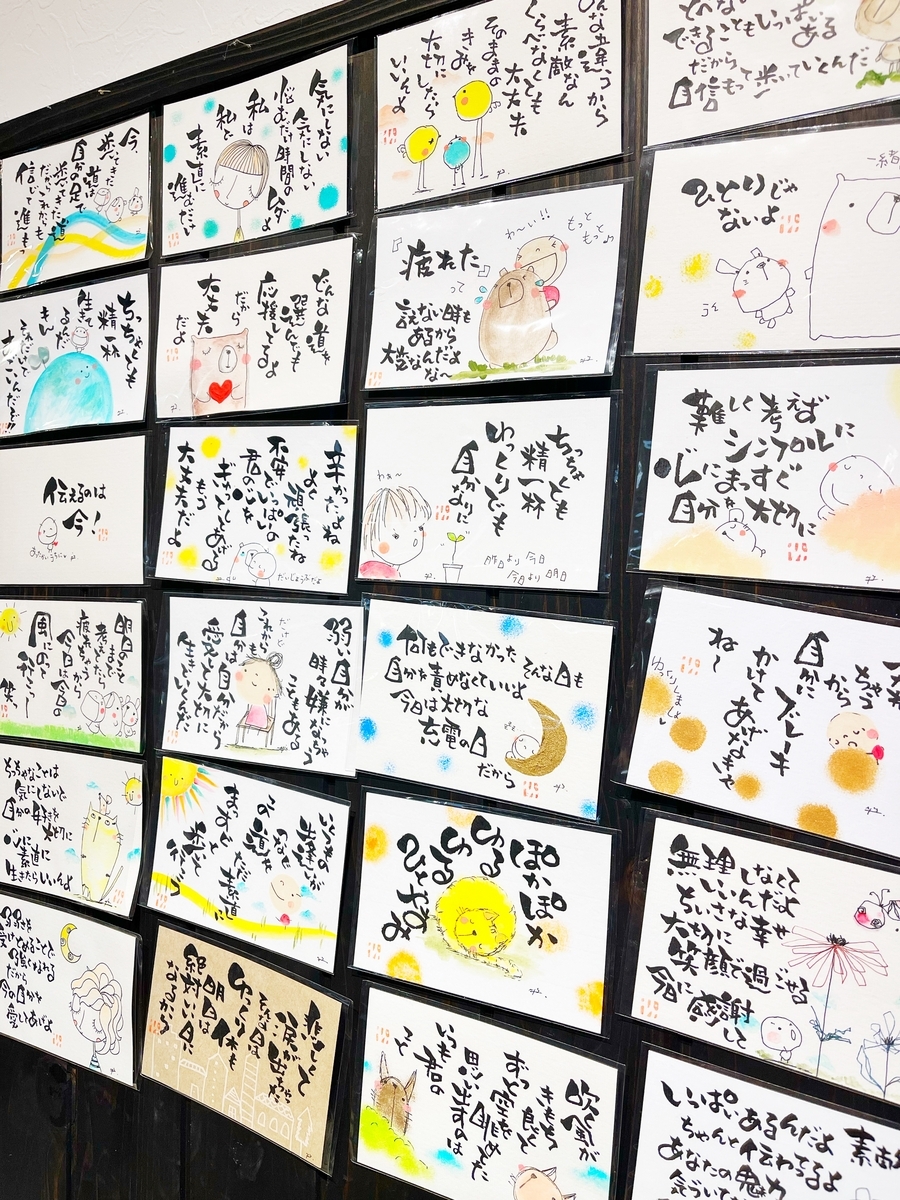 今
歩いてきた
道は
自分の足で
歩いてきた道
だからこれからも
信じて進もっ
ちっちゃくても
精一杯
生きて
るんだ
伝えるのは
今！
明日のこと
考えてたら
疲れちゃう
今日は今日の
風にのって
笑
ちっちゃなことは
気にしないで
自分の好きを
大切に
心に素直に
生きたらいいんよ
弱さを
受けとめることで
強くなれる
だから
今の自分を
愛してあげよ
気にしない
気にしない
悩むだけ時間のムダ
私は
私と
素直に
進むだけ
どんな道を
選んでも
応援してるよ
だから
大丈夫
だよ
辛かったよね
よく頑張ったね
不安でいっぱいの
君の心を
ギュッてしてあげる
もう
大丈夫だよ
だいじょうぶだよ
弱い自分が
時々嫌になっちゃう
こともある
だけど
これからも
自分は自分だから
愛して大切に
生きていくんだ
いろんな
道が
この道を
まっすぐ
ただ素直に
歩いて
行こう
悲しくて
涙が出ちゃう
そんな日は
ゆっくり休も
明日は
絶対いい日に
なるから
みんな違うから
素敵なん
くらべなくても
大丈夫
そのままの
きみを
大切にしたら
いいんよ
わ〜い!!
もっと
もっと♪
疲れた
って
言えない時も
あるから
大変なんだよ
な〜
ちっちゃくても
精一杯
ゆっくりでも
自分なりに
わぁ〜
昨日より今日
今日より明日
何もできなかった
そんな日も
自分を責めなくていいよ
今日は大切な
充電の日
だから
ぽかぽか
ゆる
ゆる
ひとやすみ
吹く風が
きもち
良くて
ずっと空を
眺めてた
思い出すのは
いつも君の
こと
できることもいっぱいある
だから
自信もって歩いていくんだ
一緒
ひとりじゃ
ないよ
難しく考えず
シンプルに
心にまっすぐ
自分を大切に
から
自分に
ブレーキ
かけてあげなきゃ
ね〜
ゆっくりしましょ
無理しなくて
いいんだよ
ちいさな幸せ
大切に
笑顔で過ごせる
今日に感謝
して
いっぱいあるんだよ
ちゃんと伝わってるよ
あなたの魅力